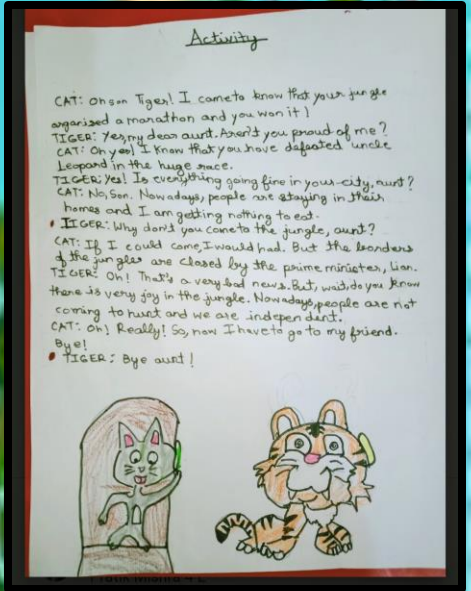 Activity
CAT: Oh son Tiger! I came to know that your jungle
organised a marathon and you won it!
TIGER: Yes, my dear aunt. Aren't you proud of me?
CAT: Oh yes! I know that you have defeated uncle
Leopard in the huge race.
TIGER: Yes! Is everything going fine in your city, aunt?
CAT: No, Son. Nowadays, people are staying in their
homes and I am getting nothing to eat.
TIGER: Why don't you come to the jungle, aunt?
CAT: If I could come, I would had. But the borders
of the jungles are closed by the prime minister, Lion.
TIGER: Oh! That's a very bad news. But, wait, do you know
there is very joy in the jungle. Nowadays, people are not
coming to hunt and we are independent.
CAT: Oh! Really! So, now I have to go to my friend.
Bye!
TIGER: Bye aunt!